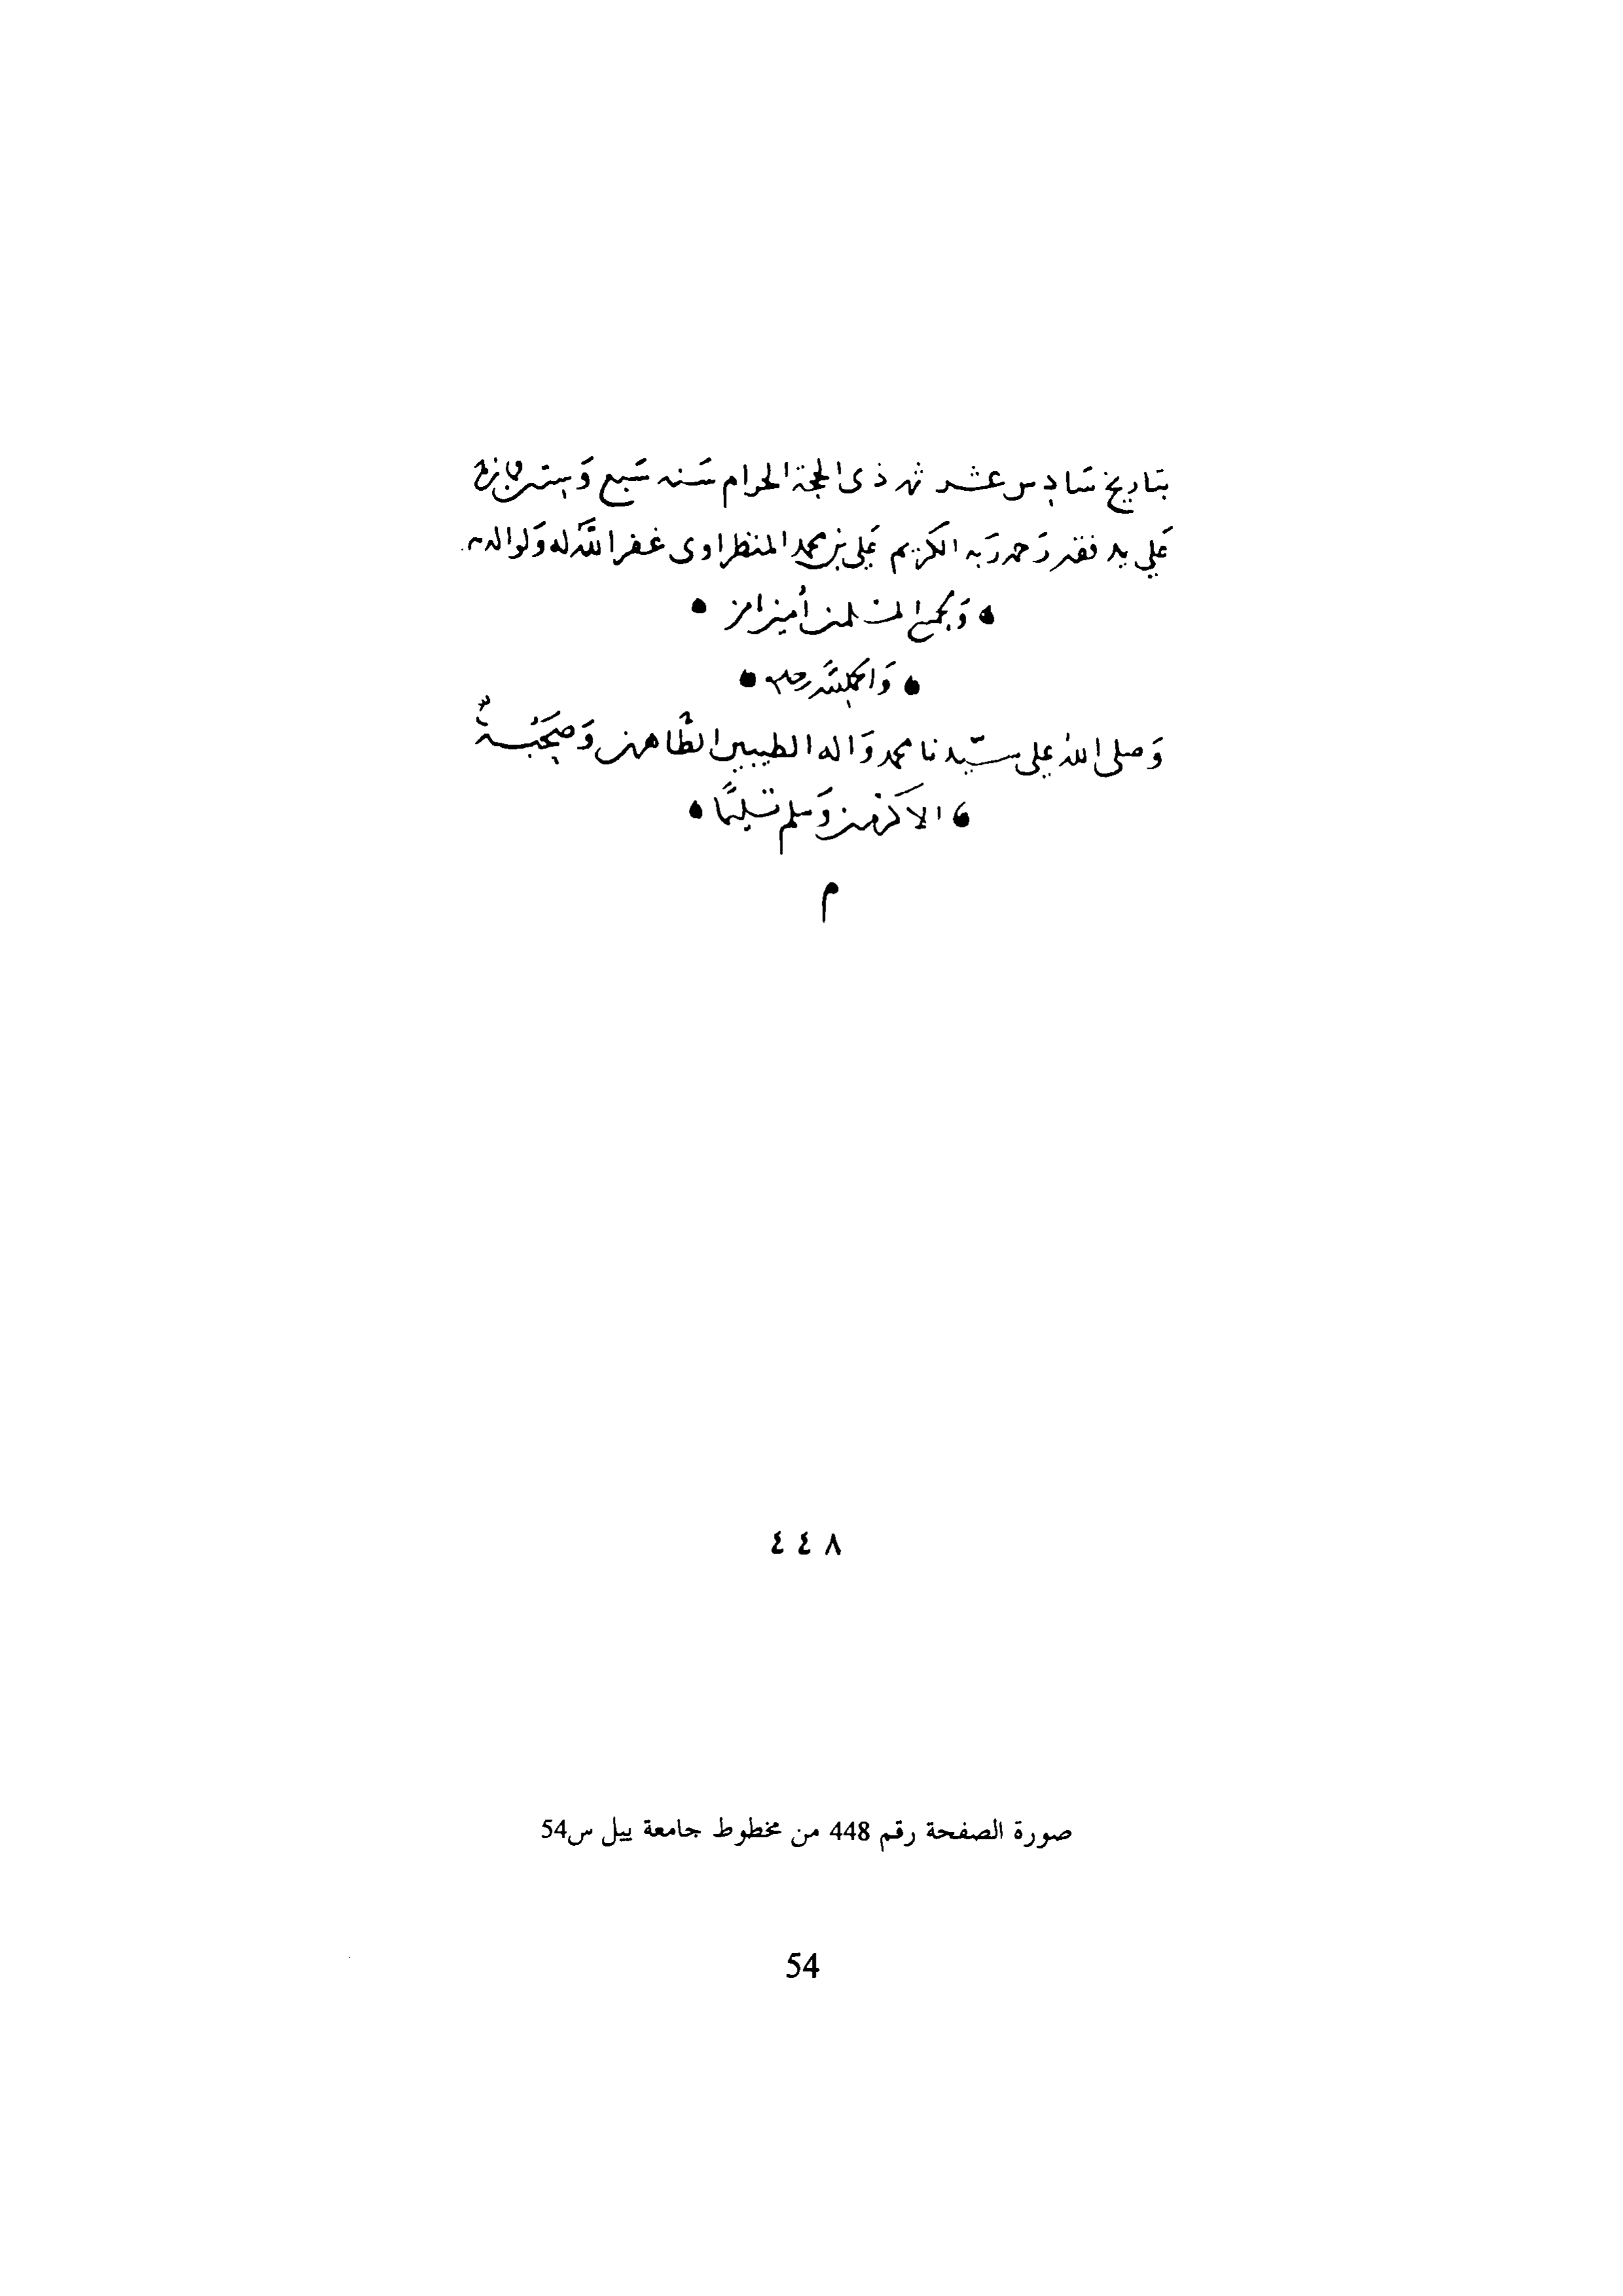 بتاريخ سَادِس عشر شهر ذى الحجة الحرام سَنه سَبع وَستين
عَلي يد فقير رَحمه رَبه الكريم عَلي بن محمد المنظراوى غفر اللَّه له وَلوالديه
وَلجميع المسلمين أمين امين
وَالحمد لله وحده
وَصلى الله على سيّدنا محمد وَاله الطيبين الطَّاهرين وَصَحْبه
الاكرمين وَسلم تسليمًا
م
٤٤٨
صورة الصفحة رقم 448 من مخطوط جامعة ييل س54
54